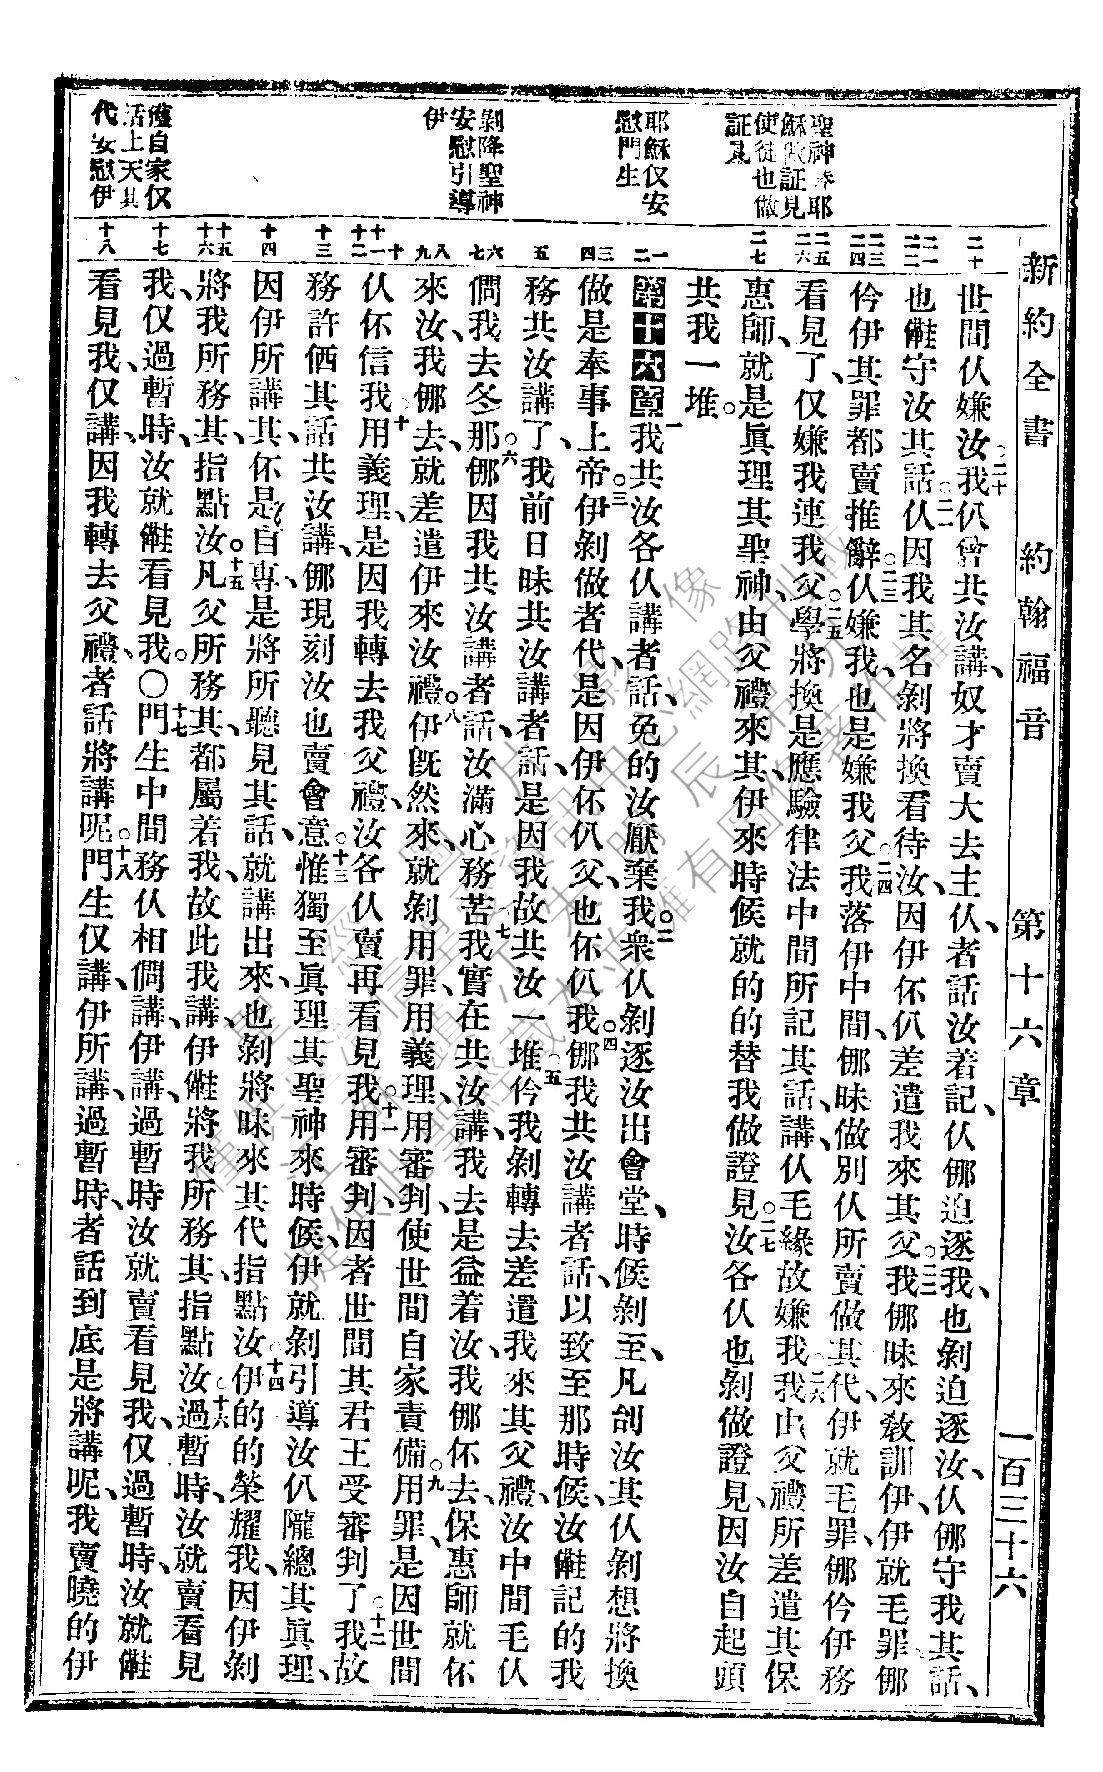 新約全書　約翰福音　第十六章　一百三十六
聖神替耶
穌做証見
使徒也做
証見
耶穌仅安
慰門生
剝降聖神
安慰引導
伊
僅自家仅
活上天其
代安慰伊
二十　二一　二二　二三　二四　二五　二六　二七　一　二　三　四　五　六　七　八　九　十　十一　十二　十三　十四　十五　十六　十七　十八
世間仈嫌汝我仈曾共汝講、奴才賣大去主仈、者話汝着記、仈那迫逐我、也剝迫逐汝、仈那守我其話、
也儺守汝其話。仈因我其名剝將換看待汝、因伊伓仈差遣我來其父。我那昧來敎訓伊、伊就毛罪、那
仱伊其罪都賣推辭。仈嫌我、也是嫌我父。我落伊中間、那昧做別仈所賣做其代、伊就毛罪、那仱伊務
看見了、仅嫌我連我父。學將換是應驗律法中間所記其話、講、仈毛緣故嫌我。我由父禮所差遣其保
惠師、就是眞理其聖神、由父禮來其、伊來時候就的的替我做證見。汝各仈也剝做證見、因汝自起頭
共我一堆。
第十六章我共汝各仈講者話、免的汝厭棄我。衆仈剝逐汝出會堂、時候剝至、凡刣汝其仈剝想將換
做是奉事上帝。伊剝做者代、是因伊伓仈父、也伓仈我。那我共汝講者話、以致至那時候、汝儺記的我
務共汝講了。我前日昧共汝講者話、是因我故共汝一堆。仱我剝轉去差遣我來其父禮、汝中間毛仈
僴我去冬那。那因我共汝講者話、汝滿心務苦。我實在共汝講、我去是益着汝、我那伓去、保惠師就伓
來汝、我那去、就差遣伊來汝禮。伊旣然來、就剝用罪用義理用審判使世間自家責備。用罪、是因世間
仈伓信我。用義理、是因我轉去我父禮、汝各仈賣再看見我。用審判、因者世間其君王受審判了。我故
務許価其話共汝講、那現刻汝也賣會意。惟獨至眞理其聖神來時候、伊就剝引導汝仈隴總其眞理、
因伊所講其、伓是自專、是將所聽見其話、就講出來、也剝將昧來其代指點汝。伊的的榮耀我、因伊剝
將我所務其、指點汝。凡父所務其、都屬着我、故此我講、伊儺將我所務其、指點汝。過暫時、汝就賣看見
我、仅過暫時、汝就儺看見我。〇門生中間務仈相僴講、伊講、過暫時汝就賣看見我、仅過暫時、汝就儺
看見我、仅講、因我轉去父禮、者話將講呢。門生仅講、伊所講、過暫時、者話到底是將講呢、我賣曉的伊